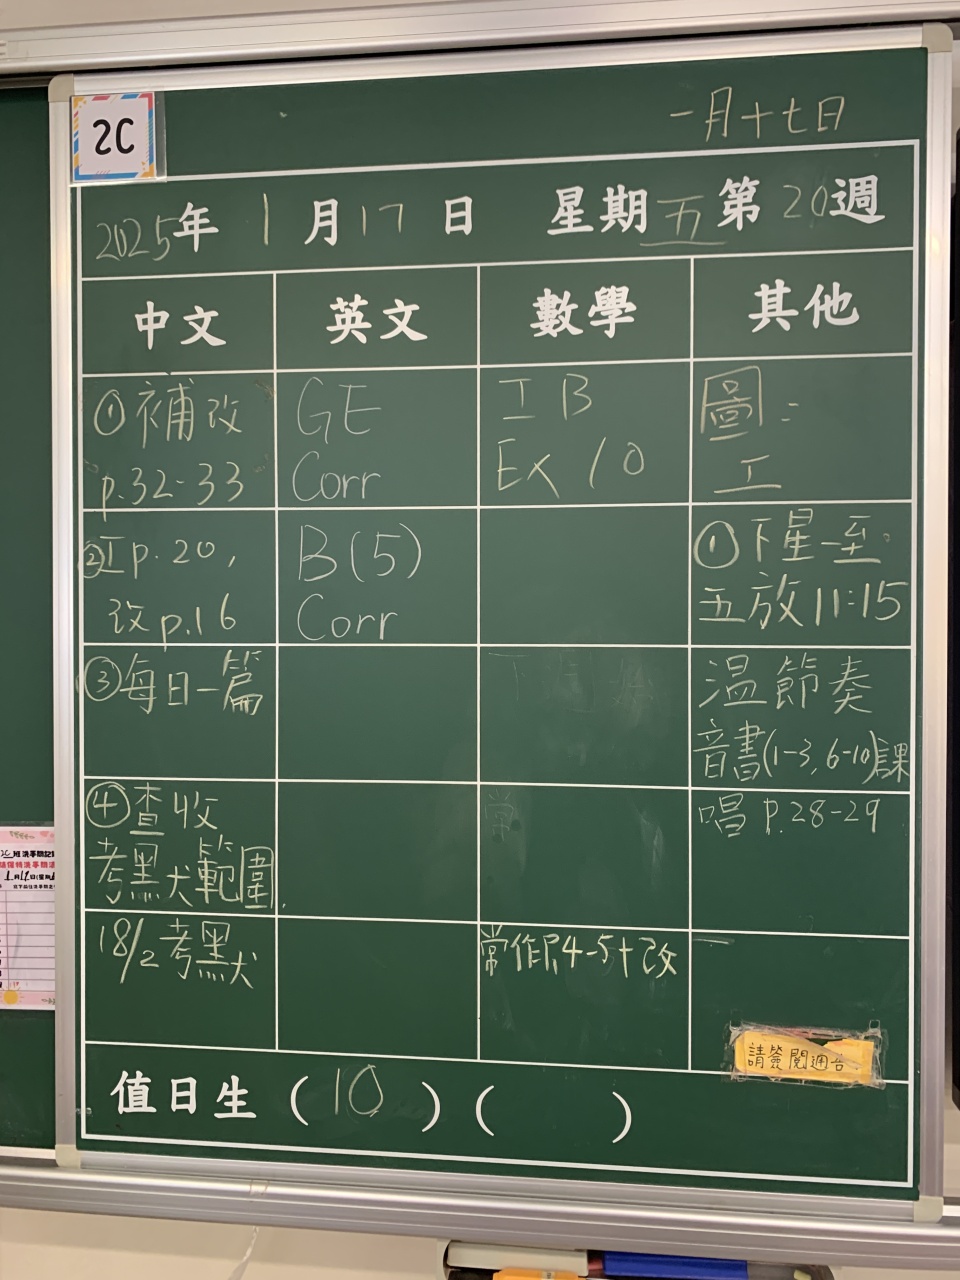 2C
一月十七日
2025年 1月17日 星期五第20週
中文 英文 數學 其他
①補改
p.32-33
GE
Corr
IB
Ex 10
圖:
工
②工p.20,
改p.16
B(5)
Corr
①下星一至
五放11:15
③每日一篇
溫節奏
音書(1-3,6-10)課
④查收
考默範圍.
唱 p.28-29
18/2考默
常作P.4-5+改
請簽閱週告
值日生 (10)( )